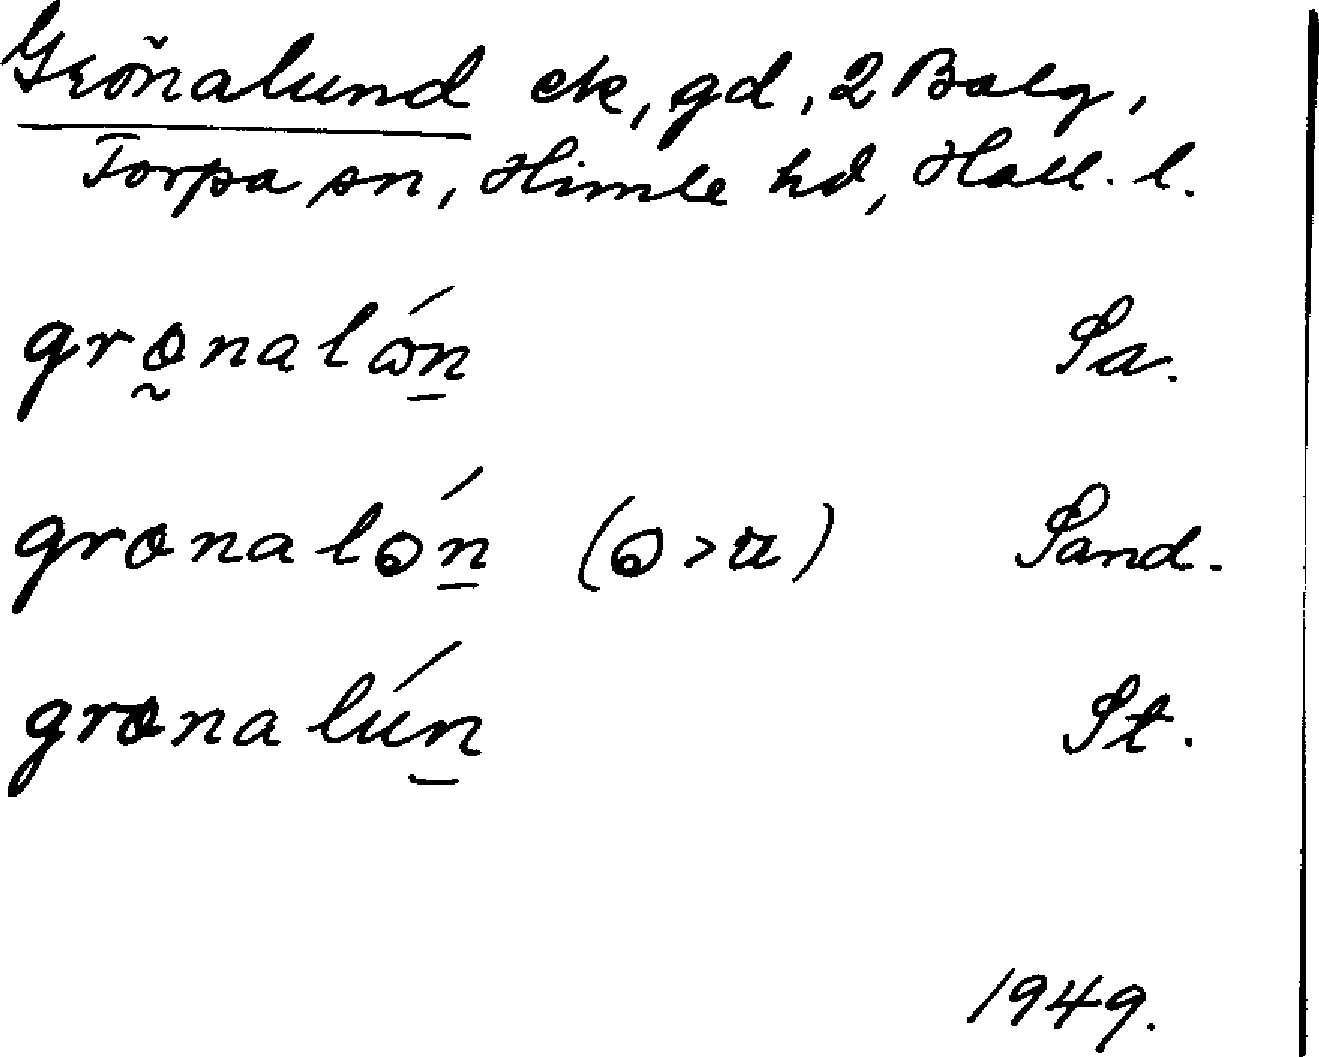 Grönalund ek, gd, 2 Balg,
Torpa sn, Himle hd, Hall. l.
grø̰nalɷ́n̲ Sa.
grønalɷ́n̲ (ɷ>u) Sand.
grønalún̲ St.
1949.